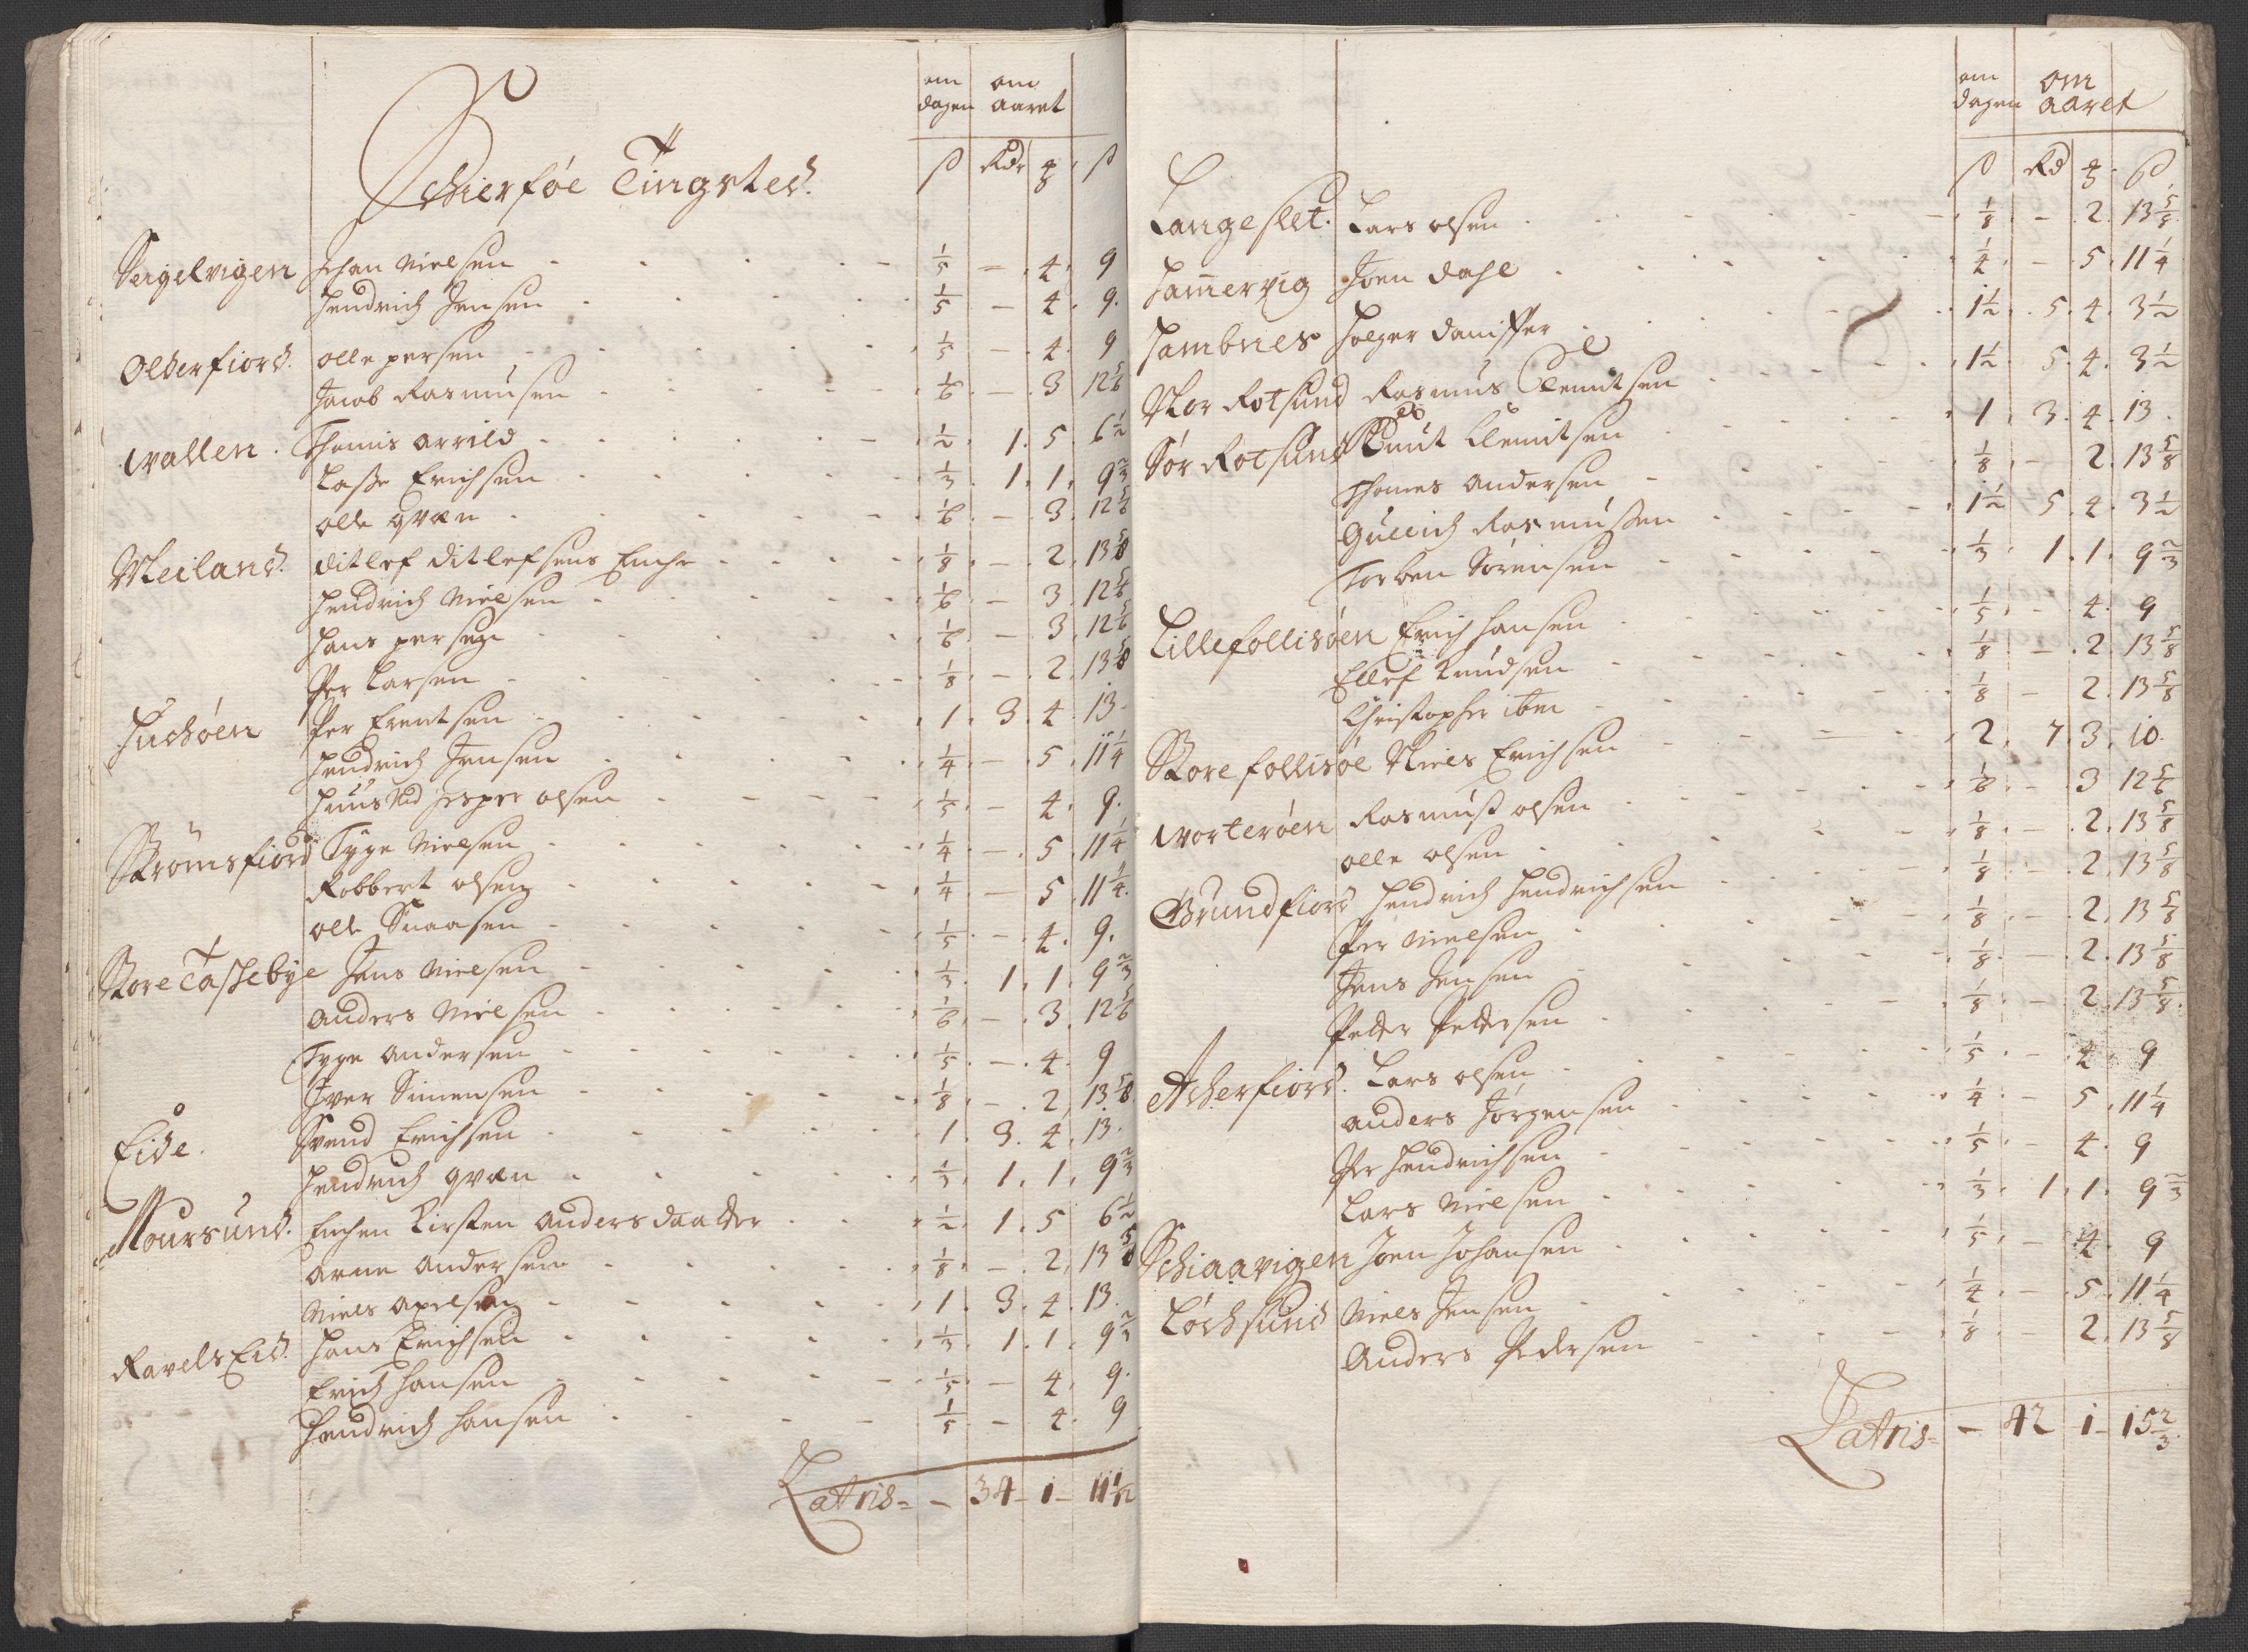 om dagen om aaret
Schierføe Tingsted.
ß Rdr ƶ ß
Sergelvigen Johan Nielsen 1/5 – 4 9
Hendrich Jensen 1/5 – 4 9.
Olderfiord. Olle persen 1/5 – 4 9
Jacob Rasmusen 1/6 – 3 12 5/6
Wallen. Thomis Arrild 1/2 1. 5. 6 1/2
Lasse Erichsen 1/3 1. 1. 9 2/3
Olle Qvæn 1/6 – 3. 12 5/6
Meiland. Ditlef Ditlefsens Enche 1/8 – 2. 13 5/8
Hendrich Nielsen 1/6 – 3. 12 5/6
Hans persen 1/6 – 3. 12 5/6
Per Larsen 1/8 – 2. 13 5/8
Per Erentsen 1. 3. 4. 13.
Hendrich Jensen 1/4 – 5. 11 1/4
Jesper Olsen 1/5 – 4. 9.
Strømsfiord Tyge Nielsen 1/4 – 5. 11 1/4
Robbert Olsen 1/4 – 5. 11 1/4.
Olle 1/5 – 4. 9.
Store Taskebye Jens Nielsen 1/3 1. 1. 9 2/3
Anders Nielsen 1/6 – 3. 12 5/6
Tyge Andersen 1/5 – 4. 9
Iver Simensen 1/8 – 2. 13 5/8
Eide. Svend Erichsen 1. 3. 4. 13.
Hendrich Qvæn 1/3 1. 1. 9 2/3
Moursund. Enchen Kirsten Andersdaatter 1/2 1. 5 6 1/2
Arne Andersen 1/8 – 2. 13 5/8
Niels Axelsen 1. 3. 4. 13.
Ravels Eid. Hans Erichsen 1/3 1. 1. 9 2/3
Erich Hansen 1/5 – 4. 9.
Hendrich Hansen 1/5 – 4. 9
Latris – 34 – 1 – 11 1/12
om dagen om aaret
ß Rd ƶ ß
Langeslet. Lars Olsen 1/8 – 2. 13 5/8
Hamervig Joen Dahl 1/4 – 5. 11 1/4
Hambnes Holger Daniffer 1 1/2 5. 4. 3 1/2
Nor Rotsund Rasmus Clemitsen 1 1/2 5. 4. 3 1/2
Sør Rotsund Knut Clemitsen 1 3. 4. 13.
Thomes Andersen 1/8 – 2. 13 5/8
Gullich Rasmussen 1 1/2 5. 4. 3 1/2
Torben Sørensen 1/3 1. 1. 9 2/3
Lillefollisøen Erich Hansen 1/5 – 4. 9
Ellef Knudsen 1/8 – 2. 13 5/8
Christopher Iben 1/8 – 2. 13 5/8
Store follisøe Niels Erichsen 2. 7. 3. 10.
Worterøen Rasmus Olsen 1/6 – 3 12 5/6
Olle Olsen 1/8 – 2. 13 5/8
Grundfiord Hendrich Hendrichsen 1/8 – 2. 13 5/8
Per Nielsen 1/8 – 2. 13 5/8
Jens Jensen 1/8 – 2. 13 5/8
Peder Pedersen 1/8 – 2. 13 5/8.
Acherfiord. Lars Olsen 1/5 – 4. 9
Anders Jørgensen 1/4 – 5. 11 1/4
Per Hendrichsen 1/5 – 4. 9
Lars Nielsen 1/3 1. 1. 9 2/3
Schiaavigen Joen Johansen 1/5 – 4. 9
Løchsund Niels Jensen 1/4 – 5. 11 1/4
Anders Pedersen 1/8 – 2. 13 5/8
Latris – – 42 1 – 15 2/3